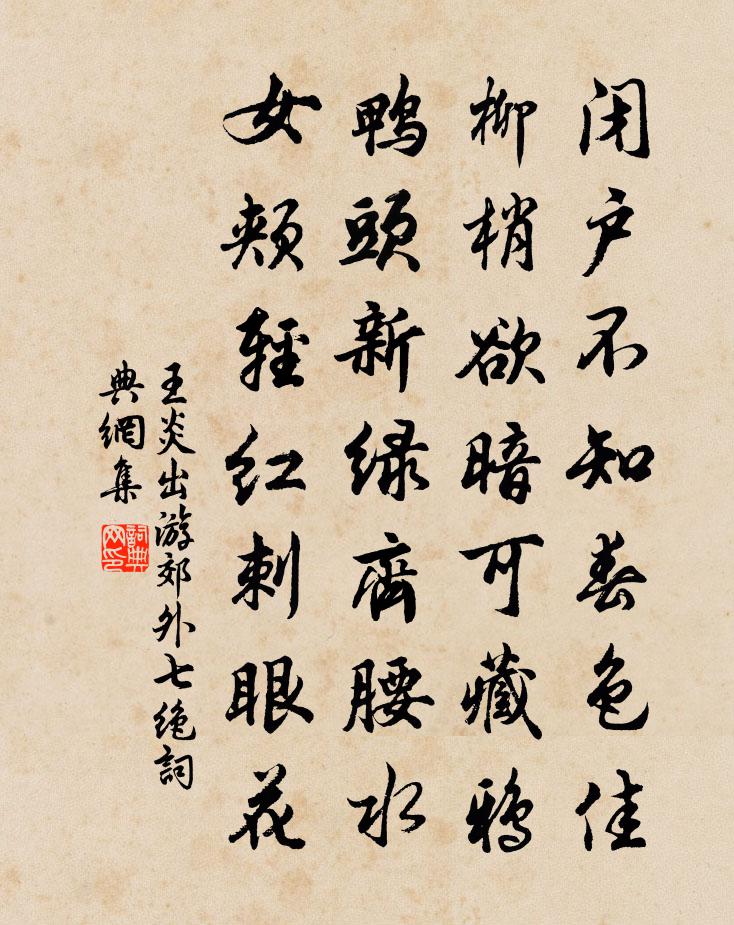 闭户不知春色佳
柳梢欲暗可藏鸦
鸭头新绿齊腰水
女颊轻红刺眼花
王炎出游郊外七绝詞
典網集
詞典
网印